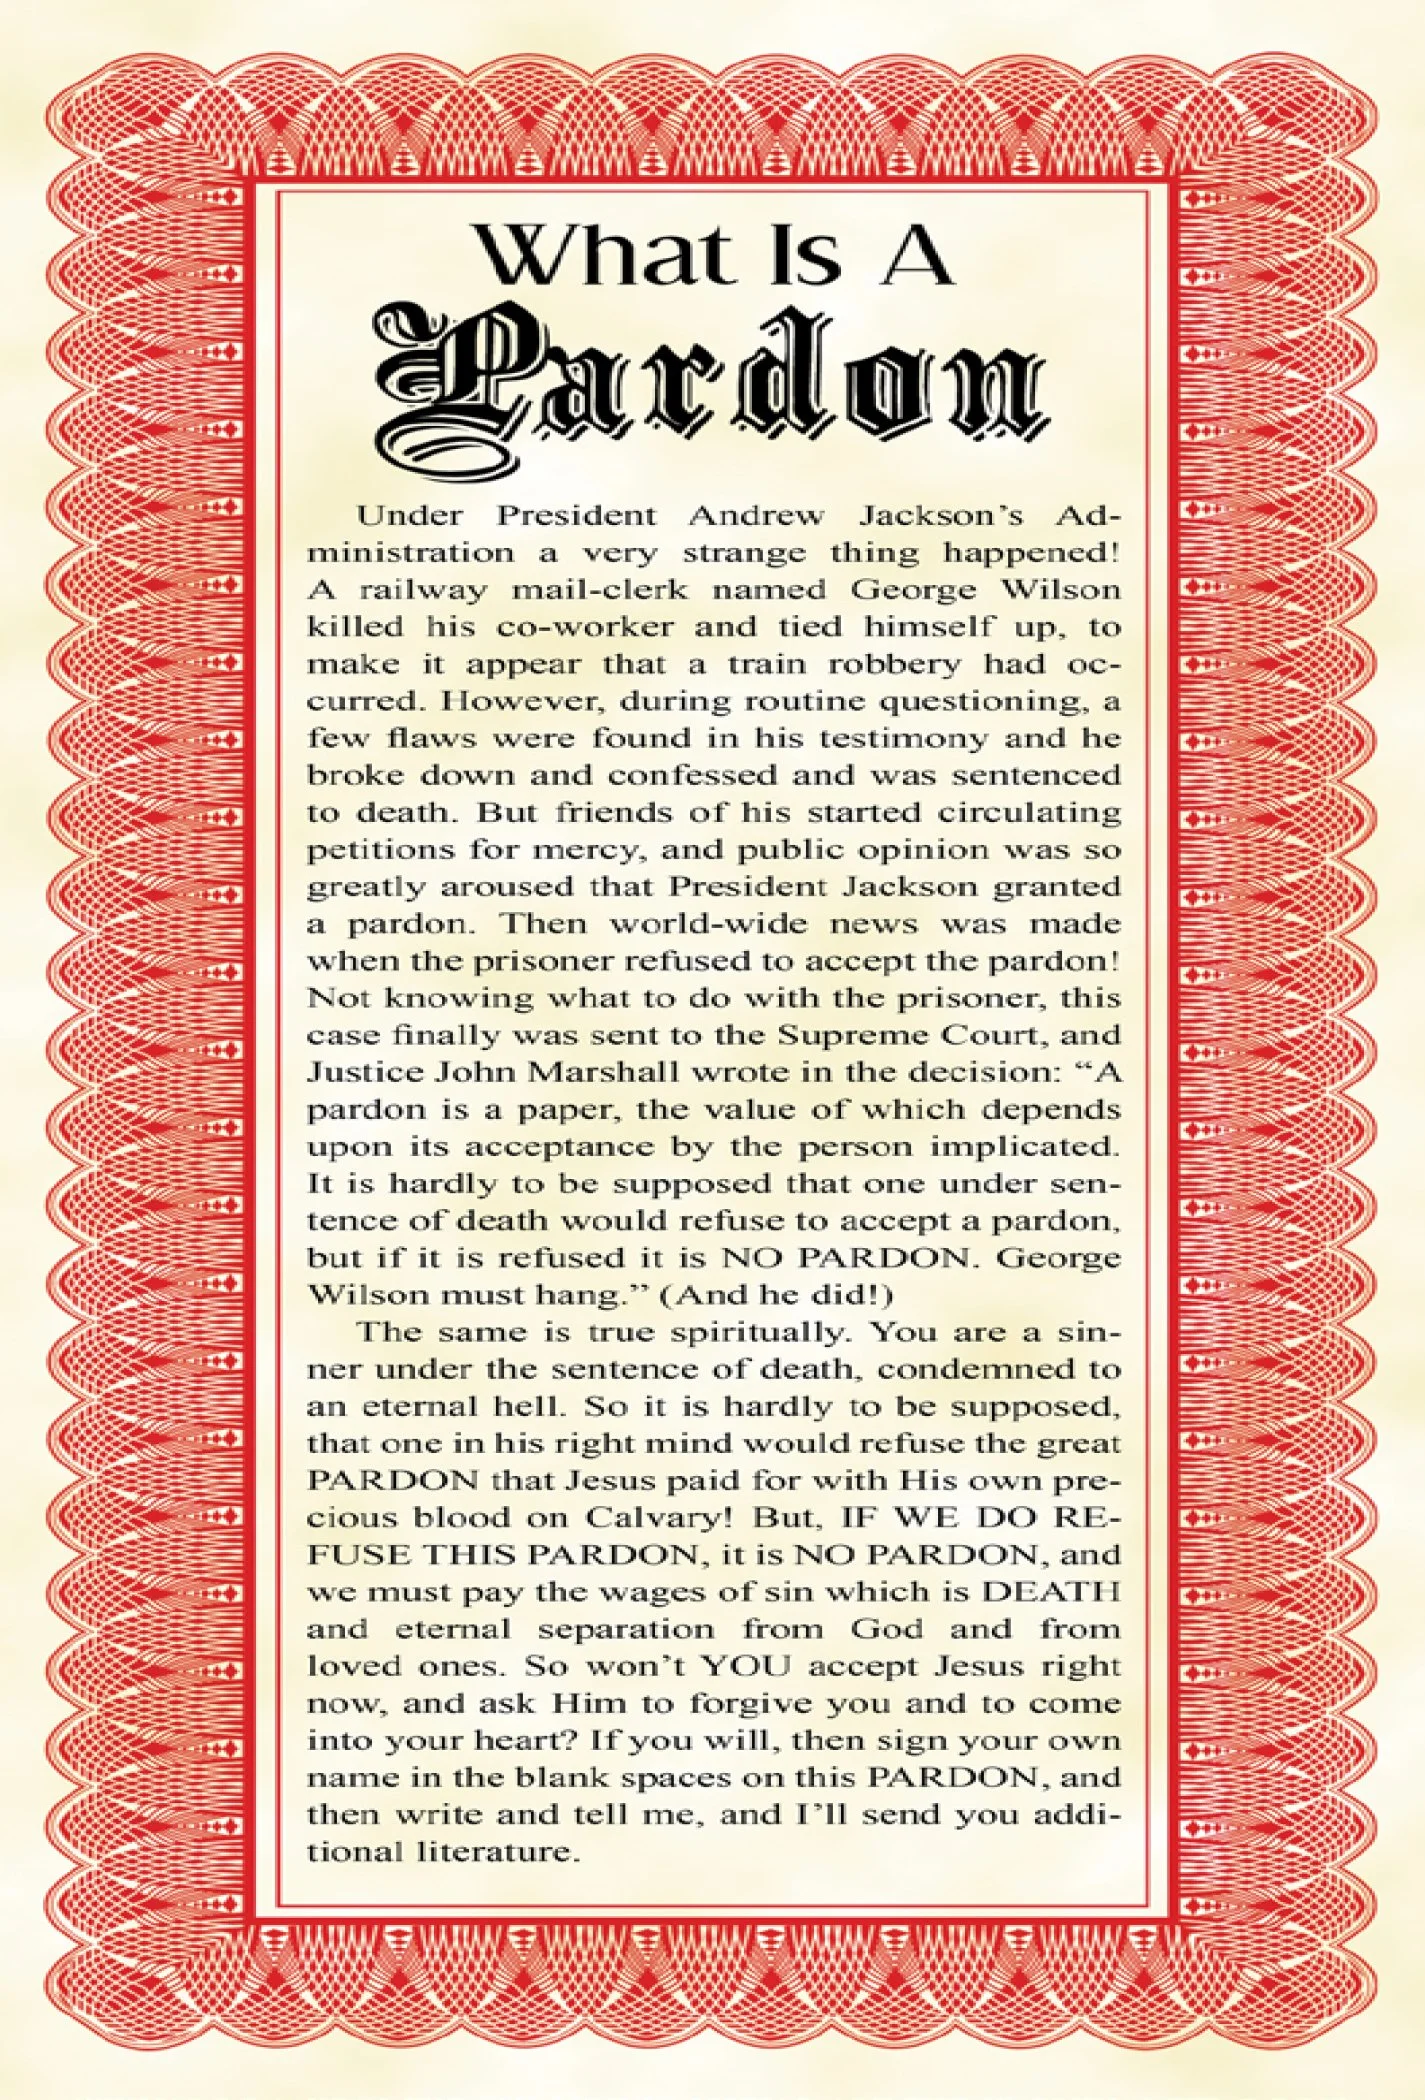 What Is A
Pardon
Under President Andrew Jackson's Ad-
ministration a very strange thing happened!
A railway mail-clerk named George Wilson
killed his co-worker and tied himself up, to
make it appear that a train robbery had oc-
curred. However, during routine questioning, a
few flaws were found in his testimony and he
broke down and confessed and was sentenced
to death. But friends of his started circulating
petitions for mercy, and public opinion was so
greatly aroused that President Jackson granted
a pardon. Then world-wide news was made
when the prisoner refused to accept the pardon!
Not knowing what to do with the prisoner, this
case finally was sent to the Supreme Court, and
Justice John Marshall wrote in the decision: “A
pardon is a paper, the value of which depends
upon its acceptance by the person implicated.
It is hardly to be supposed that one under sen-
tence of death would refuse to accept a pardon,
but if it is refused it is NO PARDON. George
Wilson must hang.” (And he did!)
The same is true spiritually. You are a sin-
ner under the sentence of death, condemned to
an eternal hell. So it is hardly to be supposed,
that one in his right mind would refuse the great
PARDON that Jesus paid for with His own pre-
cious blood on Calvary! But, IF WE DO RE-
FUSE THIS PARDON, it is NO PARDON, and
we must pay the wages of sin which is DEATH
and eternal separation from God and from
loved ones. So won't YOU accept Jesus right
now, and ask Him to forgive you and to come
into your heart? If you will, then sign your own
name in the blank spaces on this PARDON, and
then write and tell me, and I'll send you addi-
tional literature.